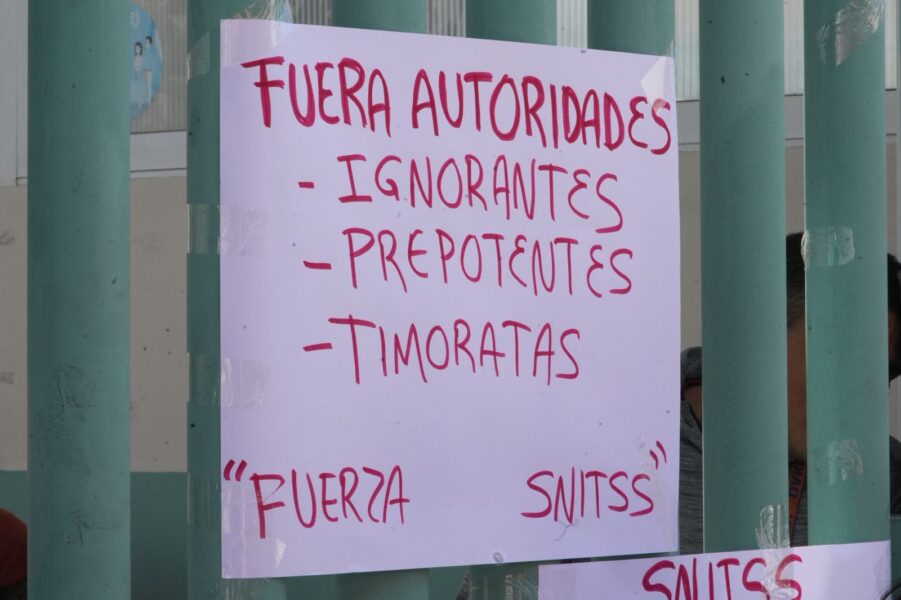 FUERA AUTORIDADES
- IGNORANTES
- PREPOTENTES
- TIMORATAS
"FUERZA SNITSS"
SNITSS